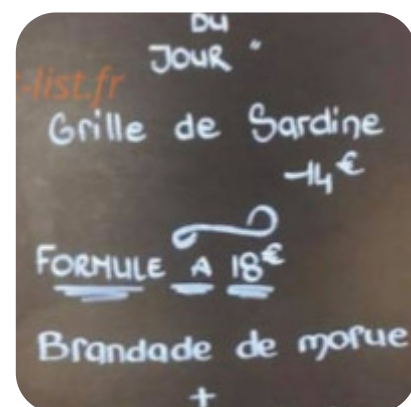 DU
JOUR "
-list.fr
Grille de Sardine
-14€
FORMULE A 18€
Brandade de morue
+